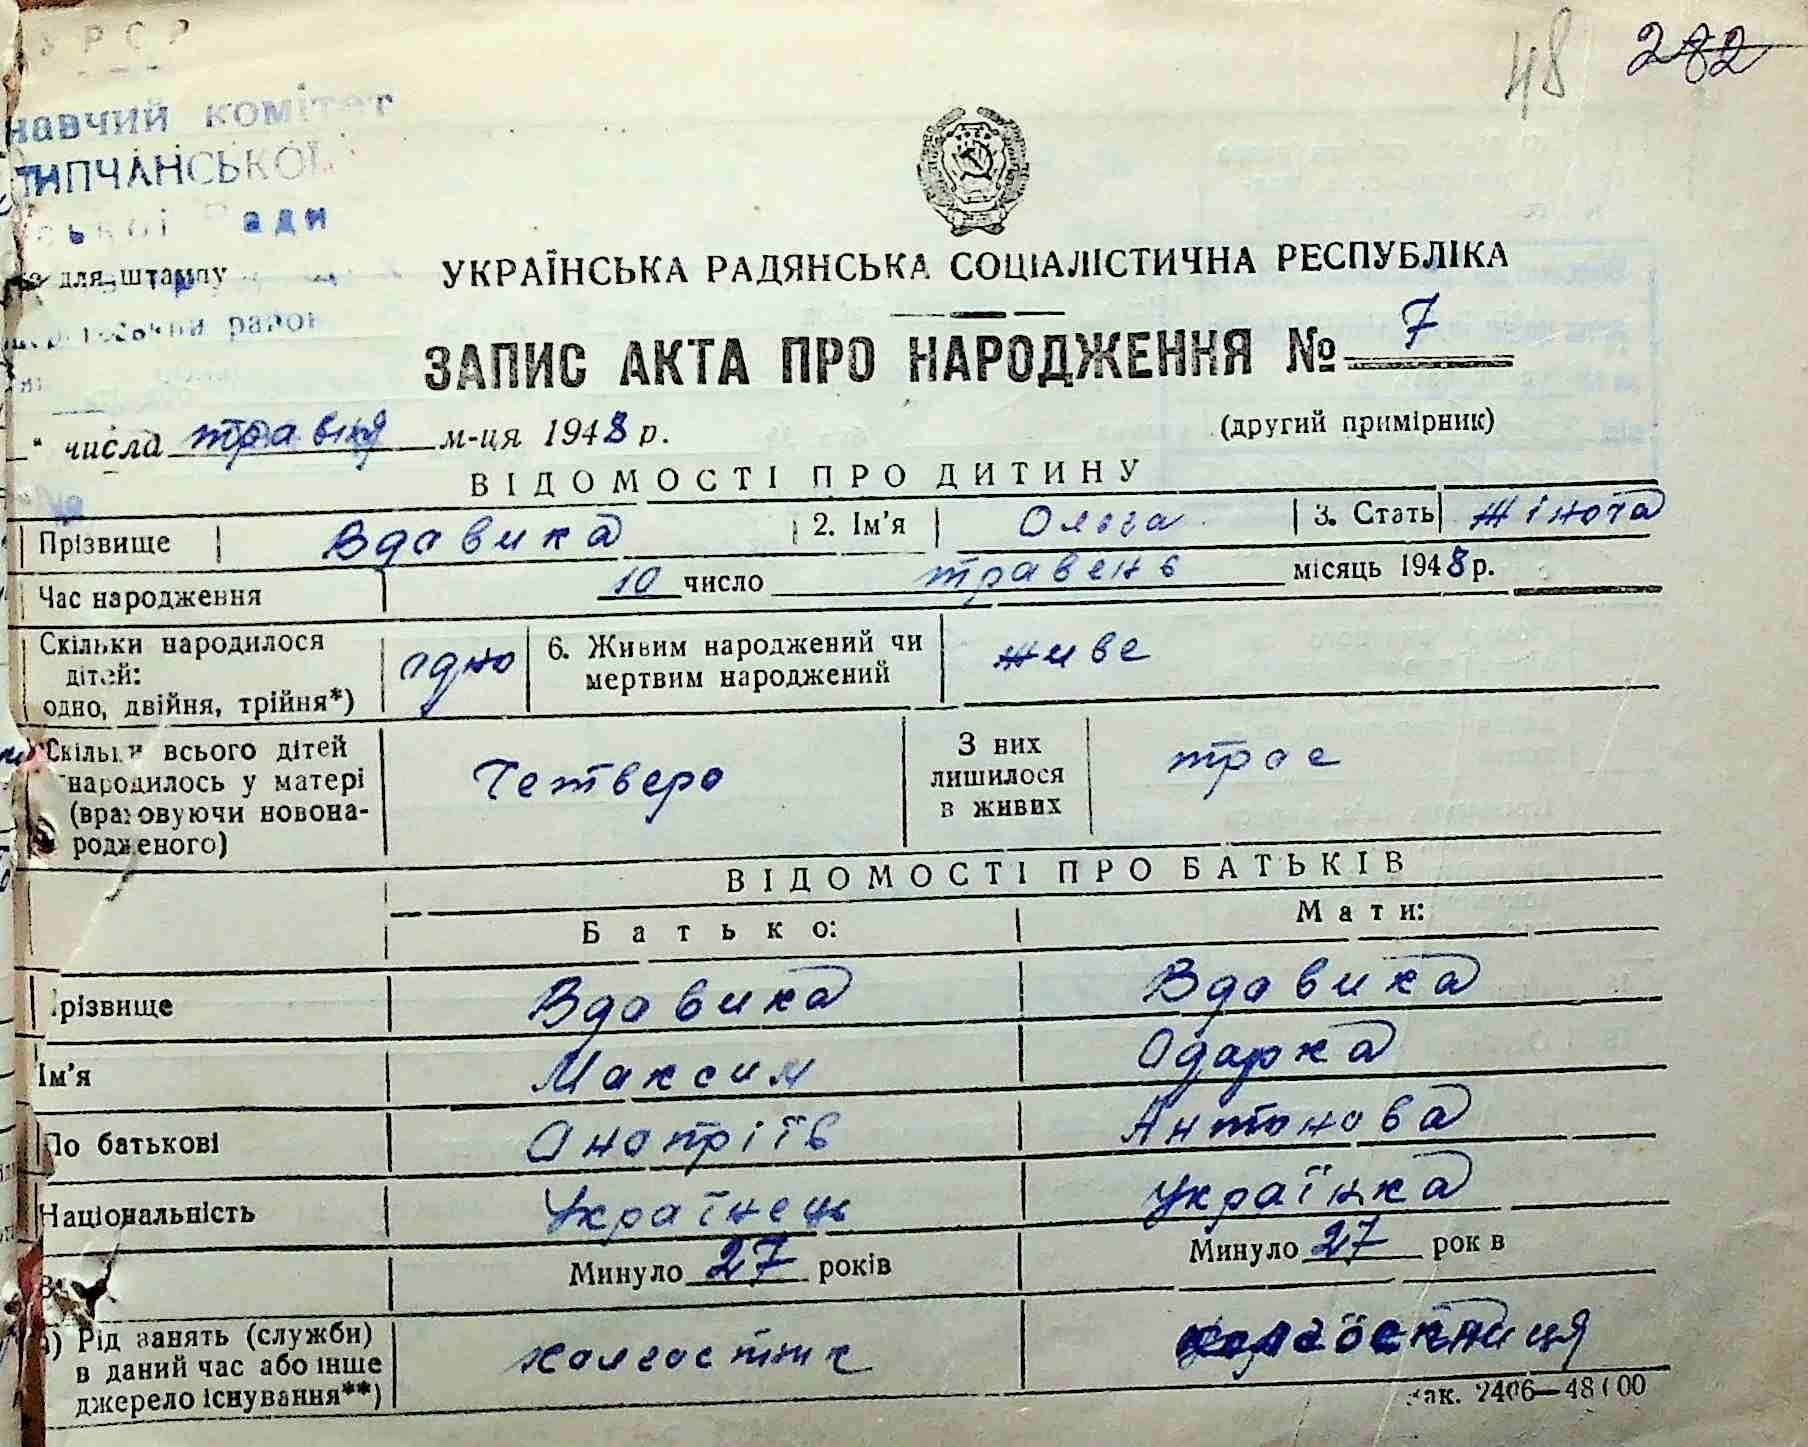 УРСР
48 282
навчий комітет
ТИПЧАНСЬКОЇ
ської Ради
для штампу
район
УКРАЇНСЬКА РАДЯНСЬКА СОЦІАЛІСТИЧНА РЕСПУБЛІКА
ЗАПИС АКТА ПРО НАРОДЖЕННЯ № 7
(другий примірник)
" числа травня м-ця 1948 р.
ВІДОМОСТІ ПРО ДИТИНУ
Прізвище Вдавика 2. Ім'я Ольга 3. Стать жіноча
Час народження 10 число травень місяць 1948 р.
Скільки народилося дітей: одно, двійня, трійня*) одно 6. Живим народжений чи мертвим народжений живе
Скільки всього дітей народилось у матері (враховуючи новонародженого) Четверо З них лишилося в живих трое
ВІДОМОСТІ ПРО БАТЬКІВ
Батько: Мати:
Прізвище Вдавика Вдавика
Ім'я Максим Одарка
По батькові Онопріїв Антонова
Національність Українець Українка
Минуло 27 років Минуло 27 рок в
) Рід занять (служби) в даний час або інше джерело існування**) колгостник колгостниця
зак. 2406—48100